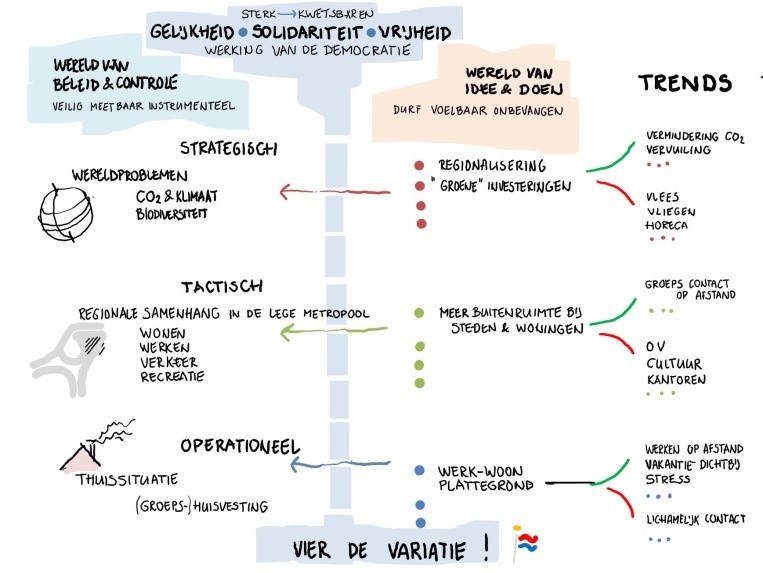 STERK → KWETSBAREN
GELIJKHEID • SOLIDARITEIT • VRIJHEID
WERKING VAN DE DEMOCRATIE
WERELD VAN
BELEID & CONTROLE
VEILIG MEETBAAR INSTRUMENTEEL
WERELD VAN
IDEE & DOEN
DURF VOELBAAR ONBEVANGEN
TRENDS
STRATEGISCH
WERELDPROBLEMEN
CO2 & KLIMAAT
BIODIVERSITEIT
• REGIONALISERING
• "GROENE" INVESTERINGEN
VERMINDERING CO2
VERVUILING
...
VLEES
VLIEGEN
HORECA
...
TACTISCH
REGIONALE SAMENHANG IN DE LEGE METROPOOL
WONEN
WERKEN
VERKEER
RECREATIE
• MEER BUITENRUIMTE BIJ
STEDEN & WONINGEN
GROEPS CONTACT
OP AFSTAND
...
OV
CULTUUR
KANTOREN
...
OPERATIONEEL
THUISSITUATIE
(GROEPS-)HUISVESTING
• WERK-WOON
PLATTEGROND
WERKEN OP AFSTAND
VAKANTIE DICHTBIJ
STRESS
...
LICHAMELIJK CONTACT
...
VIER DE VARIATIE !